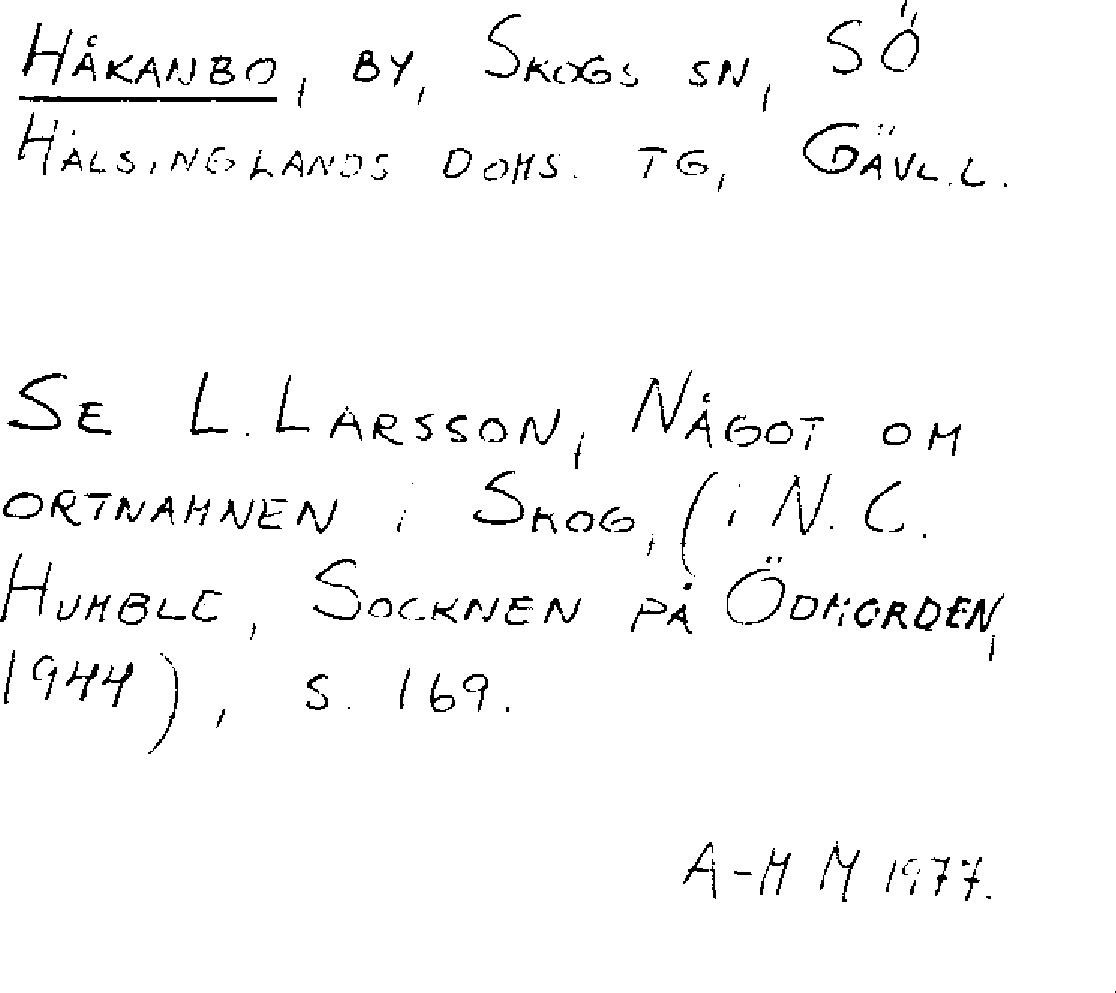 HÅKANBO, BY, SKOGS SN, SÖ
HÄLSINGLANDS DOMS. TG, GÄVL.L.
SE L. LARSSON, NÅGOT OM
ORTNAMNEN i SKOG, (i N. C.
HUMBLE, SOCKNEN PÅ ÖDMORDEN,
1944), S. 169.
A-M M 1977.